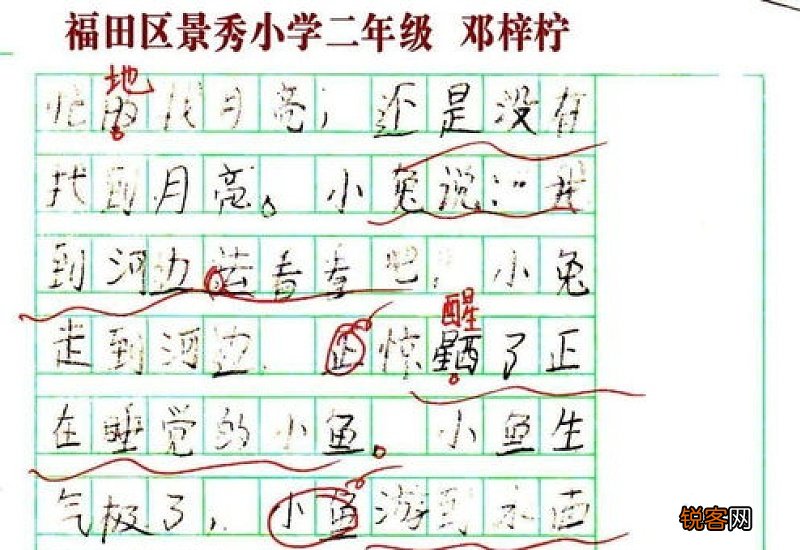 福田区景秀小学二年级 邓梓柠
地
忙的找月亮，还是没有
找到月亮。小兔说：“我
到河边去看看吧，小兔
醒
走到河边，正惊醒了正
在睡觉的小鱼。小鱼生
气极了，小鱼游到水面
锐客网